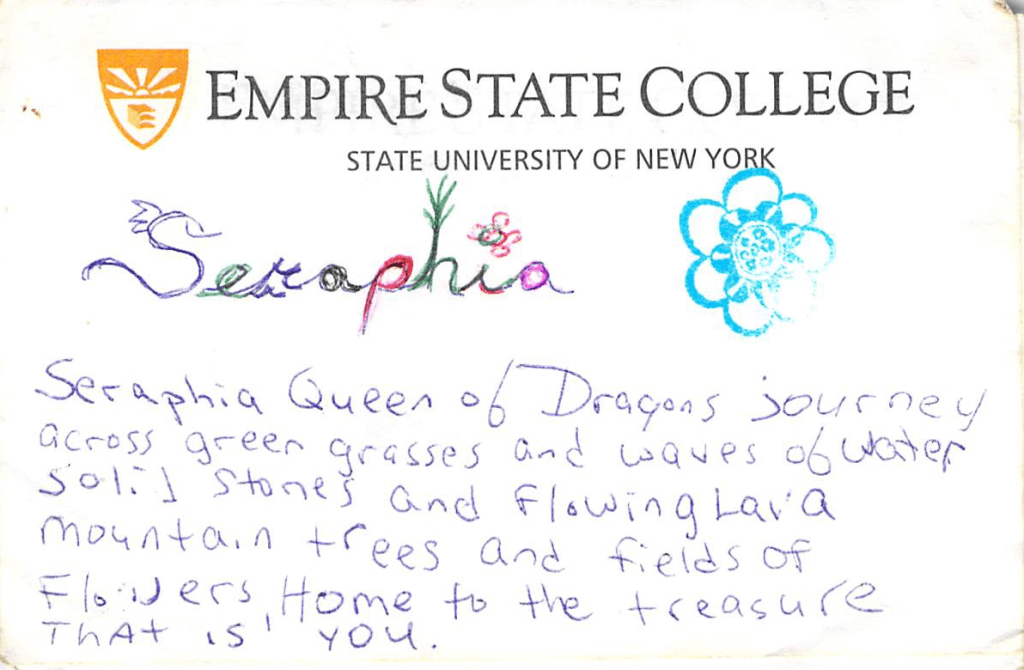 EMPIRE STATE COLLEGE
STATE UNIVERSITY OF NEW YORK
Seraphia
Seraphia Queen of Dragons journey
across green grasses and waves of water
solid stones and Flowing Lava
mountain trees and fields of
Flowers, Home to the treasure
THAt is' YOU.